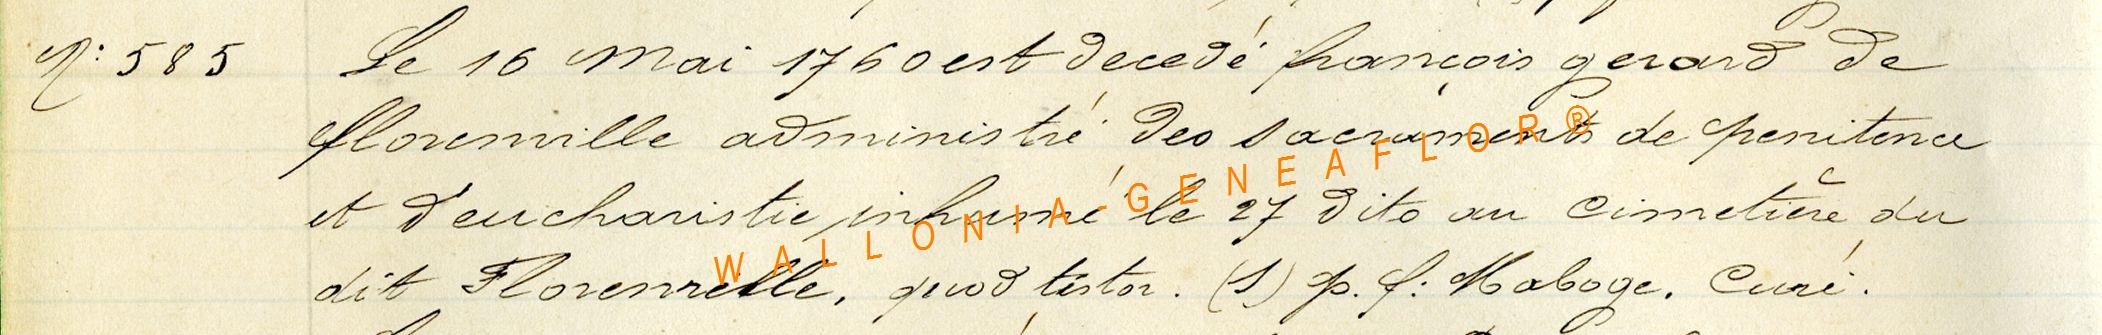 N: 585 Le 16 Mai 1760 est decedé françois gerard de
florenville administré des sacrements de penitence
et d'eucharistie, inhumé le 27 dito au cimetière du
dit Florenville, quod testor. (S) p. f: Maboge. Curé.
WALLONIA-GENEAFLOR®